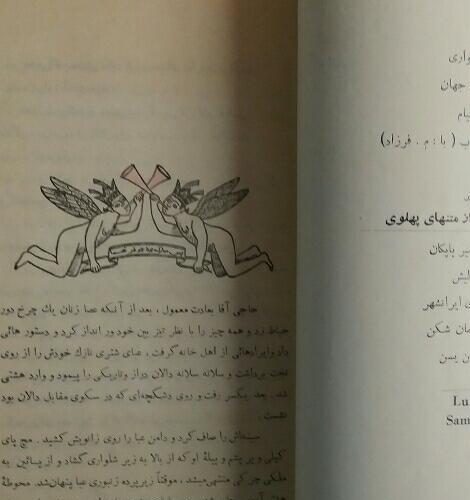 حاجی آقا بعادت معمول، بعد از آنکه عصا زنان یك چرخ دور
حیاط زد و همه چیز را با نظر تیز بین خود ور انداز کرد و دستور هائی
داد و ایرادهائی از اهل خانه گرفت، عبای شتری نازك خودش را از روی
تخت برداشت و سلانه سلانه دالان دراز و تاریکی را پیمود و وارد هشتی
شد. بعد یکسر رفت و روی دشکچه‌ای که در سکوی مقابل دالان بود
نشست.
سینه‌اش را صاف کرد و دامن عبا را روی زانویش کشید. مچ پای
کپلی و پر پشم و پیلهٔ او که از بالا به زیر شلواری گشاد و از پائین به
ملکی چرکی منتهی میشد، موقتاً زیر پرده زنبوری عبا پنهان شد. محوطهٔ
واری
جهان
یام
ب ( با : م . فرزاد)
از متنهای پهلوی
یر بابکان
ایرانشهر
مان شکن
ن یسن
Lu
Sam